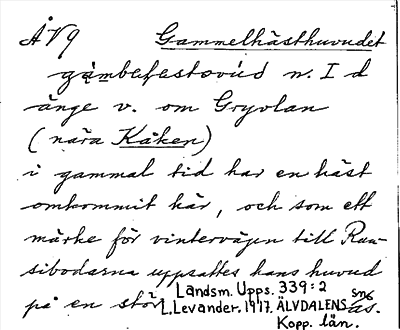 ÅV9 Gammelhästhuvudet
n. I d
änge v. om Gryvlan
(nära Kåken)
i gammal tid har en häst
omkommit här, och som ett
märke för vintervägen till Ran-
sibodarna uppsattes hans huvud
på en stör
Landsm. Upps. 339:2
L. Levander. 1917. ÄLVDALENS sn
Kopp. län.